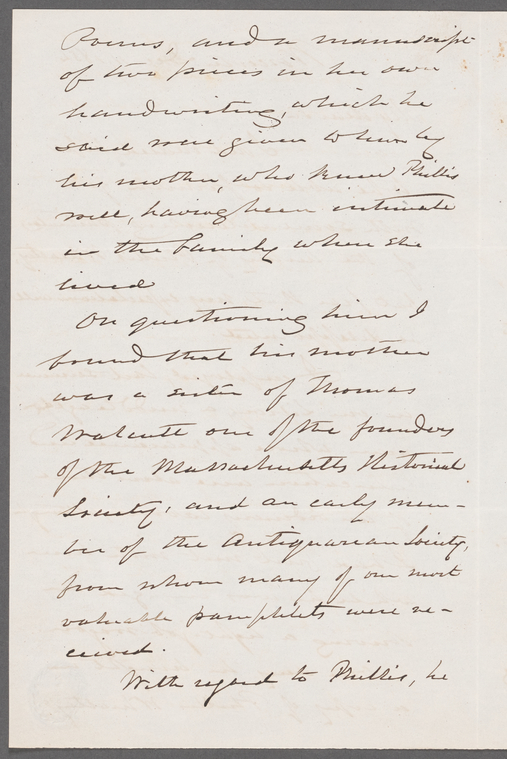 Poems, and a manuscript
of two pieces in her own
handwriting, which he
said were given to him by
his mother, who knew Phillis
well, having been intimate
in the family where she
lived
On questioning him I
found that his mother
was a sister of Thomas
Walcutt one of the founders
of the Massachusetts Historical
Society, and an early mem-
ber of the Antiquarean Society,
from whom many of our most
valuable pamphlets were re-
ceived.
With regard to Phillis, he